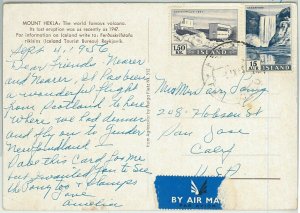 MOUNT HEKLA. The world famous volcano.
Its last eruption was as recently as 1947.
For information on Iceland write to: Ferðaskrifstofa
ríkisins (Iceland Tourist Bureau) Reykjavík.
Sept 11, 1956
Dear Friends Nearer
and Nearer, it has been
a wonderful flight
from Scotland to here
Where we had dinner
and fly on to Gander
Newfoundland -
Take this Card for me
but wanted you to See
the Pony too & Stamps
Love
Amelia
1,50 KR ÍSLAND
15 AUR ÍSLAND
Mr & Mrs Perry
248 Hobson St
San Jose
Calif
U.S.A
BY AIR MAIL